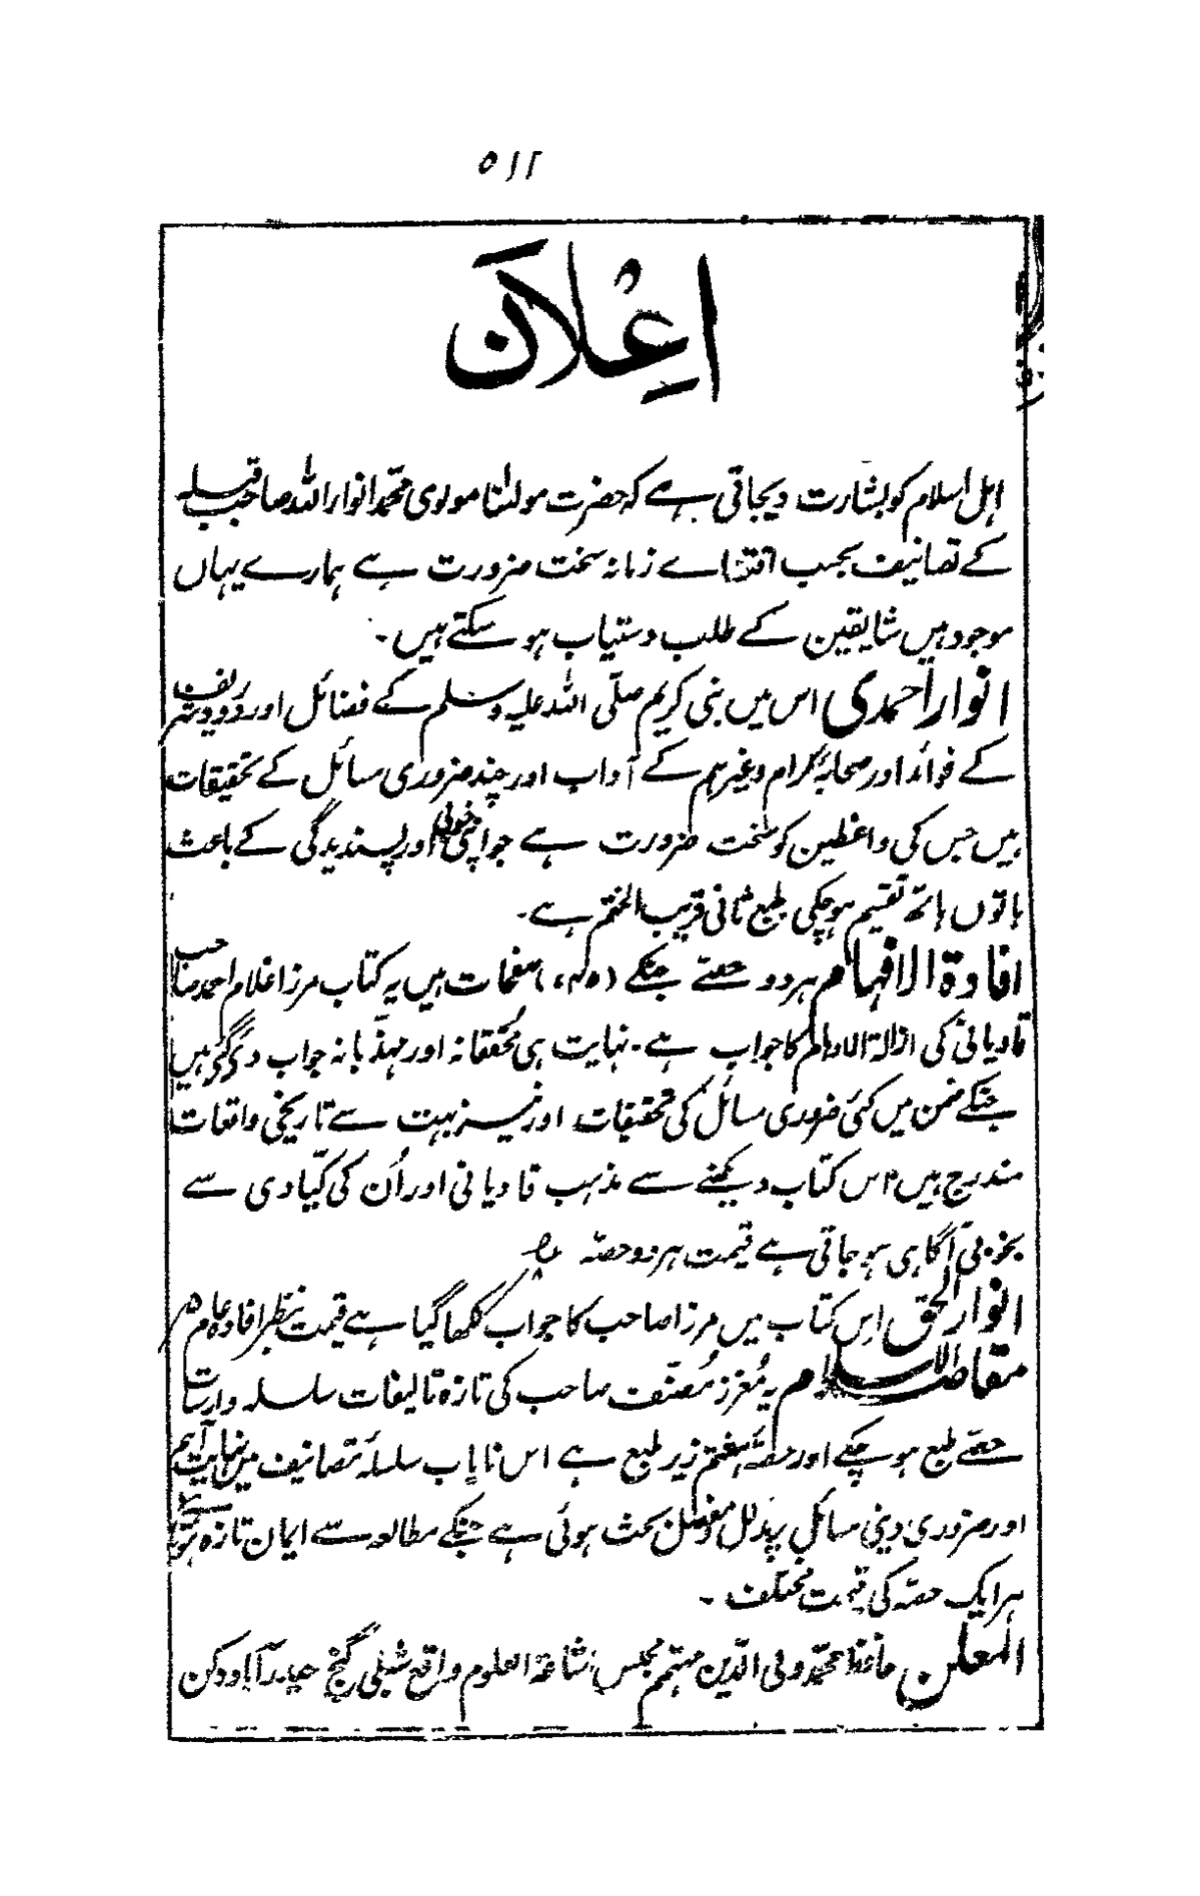 ۵۱۲
اِعْلَان
اہل اسلام کو بشارت دیجاتی ہے کہ حضرت مولٰنا مولوی محمّد انوار اللہ صاحب قبلہ
کے تصانیف بحسب اقتضاے زمانہ سخت ضرورت ہے ہمارے یہاں
موجود ہیں شایقین کے طلب دستیاب ہو سکتے ہیں۔
انوار احمدی اس میں بنی کریم صلّی اللہ علیہ وسلم کے فضائل اور درود شریف
کے فوائد اور صحابہ کرام وغیرہم کے آداب اور چند ضروری مسائل کے تحقیقات
ہیں جس کی واعظین کو سخت ضرورت ہے جو اپنی خوبی اور پسندیدگی کے باعث
ہاتوں ہاتھ تقسیم ہوچکی طبع ثانی قریب الختم ہے۔
افادۃ الافہام ہر دو حصّے جنکے صفحات ہیں یہ کتاب مرزا غلام احمد صاحب
قادیانی کی ازالۃ الاوہام کا جواب ہے۔ نہایت ہی محققانہ اور مہذّبانہ جواب دی گئی ہیں
جنکے ضمن میں کئی ضروری مسائل کی تحقیقات اور نیز بہت سے تاریخی واقعات
مندرج ہیں اس کتاب دیکھنے سے مذہب قادیانی اور اُن کی کیّادی سے
بخوبی آگاہی ہو جاتی ہے قیمت ہر دو حصّہ
انوار الحق اِس کتاب میں مرزا صاحب کا جواب لکھا گیا ہے قیمت بنظر افادہ عام
مقاصد الاسلام یہ مُعزز مُصنّف صاحب کی تازہ تالیفات سلسلہ وار سات
حصّے طبع ہو چکے اور حصّہ ہشتم زیر طبع ہے اس نایاب سلسلۂ تصانیف میں نہایت اہم
اور ضروری دینی مسائل پر مدلل و مفصل بحث ہوئی ہے جنکے مطالعہ سے ایمان تازہ
ہر ایک حصّہ کی قیمت مختلف۔
المعلن حافظ محمّد ولی الدّین مہتمم مجلس اشاعۃ العلوم واقع شبلی گنج حیدرآباد دکن